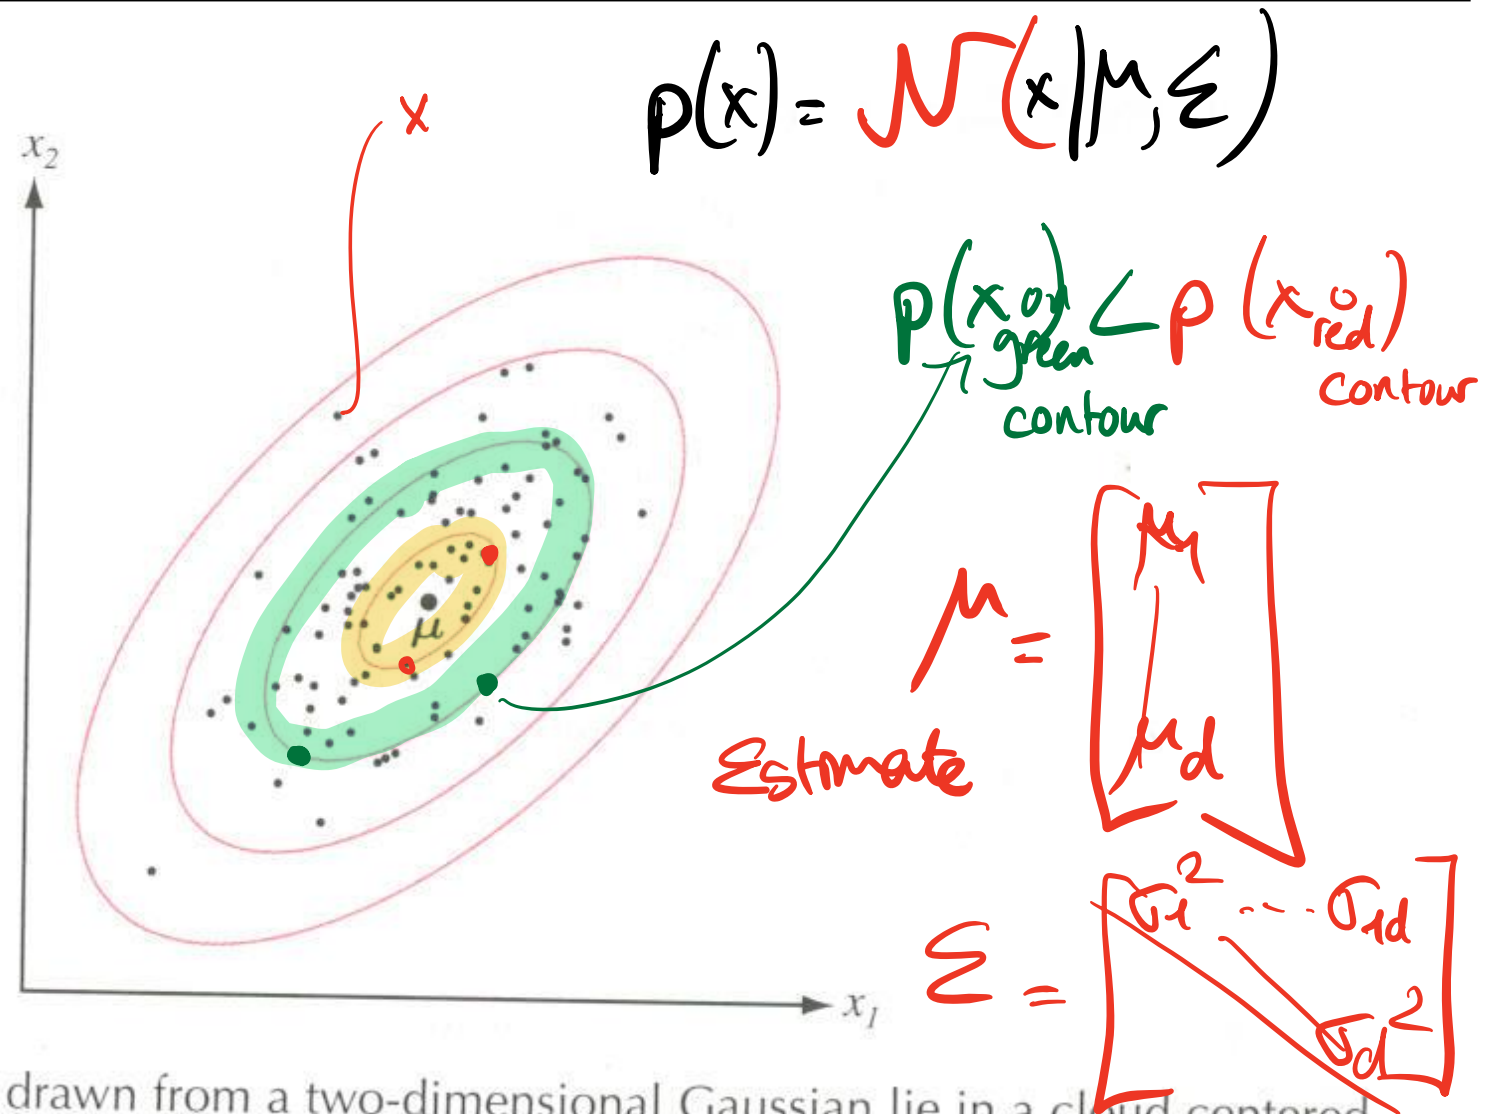 p(x) = N(x|μ, Σ)
x
x₂
p(x on green contour) < p(x o red contour)
μ
μ = [μ₁ μd]
Estimate
Σ = [σ₁² ---- σ₁d σd²]
x₁
drawn from a two-dimensional Gaussian lie in a cloud centered